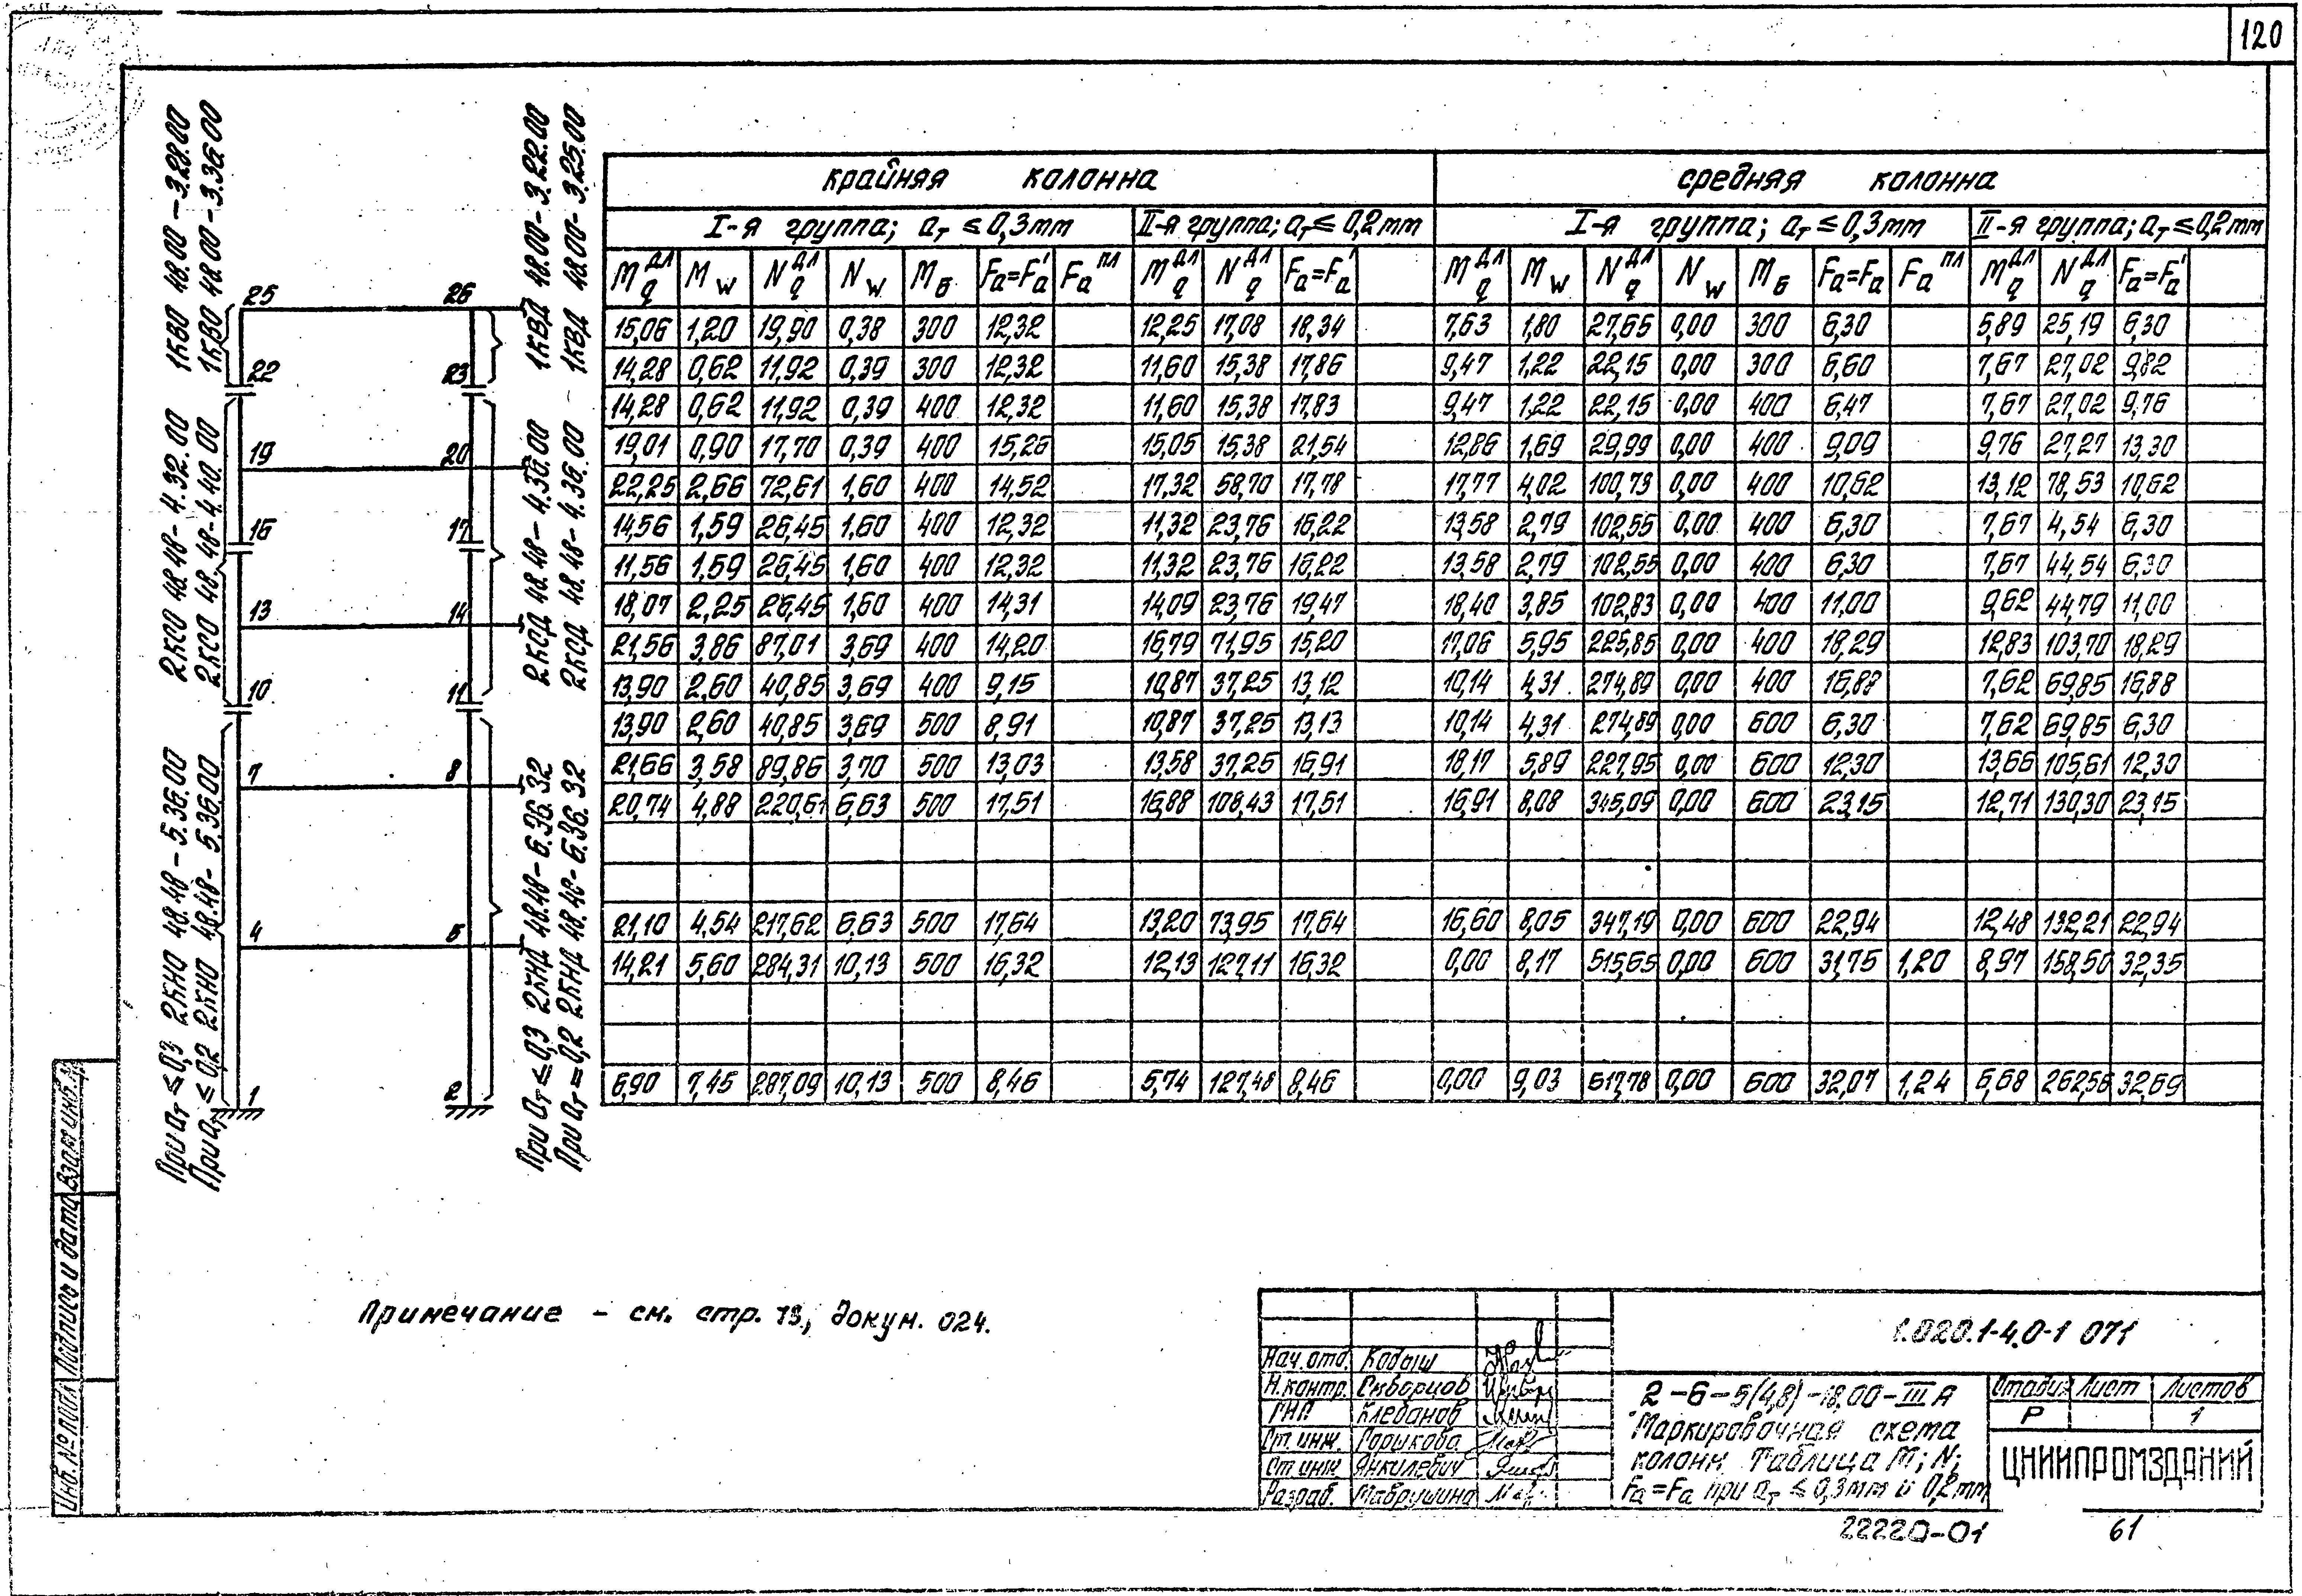 120
1КВО 48.00 - 3.28.00
1КВО 48.00 - 3.36.00
2КСО 48.48 - 4.32.00
2КСО 48.48 - 4.40.00
При aт ≤ 0,3 2КНО 48.48 - 5.36.00
При aт ≤ 0,2 2КНО 48.48 - 5.36.00
1КВД 48.00 - 3.22.00
1КВД 48.00 - 3.25.00
2КСД 48.48 - 4.36.00
2КСД 48.48 - 4.36.00
При aт ≤ 0,3 2КНД 48.48 - 6.36.32
При aт = 0,2 2КНД 48.48 - 6.36.32
25 26
22 23
19 20
16 17
13 14
10 11
7 8
4 5
1 2
крайняя колонна средняя колонна
I-я группа; aт ≤ 0,3mm II-я группа; aт ≤ 0,2mm I-я группа; aт ≤ 0,3mm II-я группа; aт ≤ 0,2mm
Mqдл Mw Nqдл Nw Mб Fa=Fa' Faпл Mqдл Nqдл Fa=Fa' Mqдл Mw Nqдл Nw Mб Fa=Fa Faпл Mqдл Nqдл Fa=Fa'
15,06 1,20 19,90 0,38 300 12,32 12,25 17,08 18,34 7,63 1,80 27,65 0,00 300 6,30 5,89 25,19 6,30
14,28 0,62 11,92 0,39 300 12,32 11,60 15,38 17,86 9,47 1,22 22,15 0,00 300 6,60 7,67 27,02 9,82
14,28 0,62 11,92 0,39 400 12,32 11,60 15,38 17,83 9,47 1,22 22,15 0,00 400 6,47 7,67 27,02 9,76
19,01 0,90 17,70 0,39 400 15,26 15,05 15,38 21,54 12,86 1,69 29,99 0,00 400 9,09 9,76 27,27 13,30
22,25 2,66 72,61 1,60 400 14,52 17,32 58,70 17,78 17,77 4,02 100,73 0,00 400 10,62 13,12 78,53 10,62
14,56 1,59 26,45 1,60 400 12,32 11,32 23,76 16,22 13,58 2,79 102,55 0,00 400 6,30 7,67 4,54 6,30
11,56 1,59 26,45 1,60 400 12,32 11,32 23,76 16,22 13,58 2,79 102,55 0,00 400 6,30 7,67 44,54 6,30
18,07 2,25 26,45 1,60 400 14,31 14,09 23,76 19,47 18,40 3,85 102,83 0,00 400 11,00 9,62 44,79 11,00
21,56 3,86 87,01 3,69 400 14,20 16,79 71,95 15,20 17,06 5,95 225,85 0,00 400 18,29 12,83 103,70 18,29
13,90 2,60 40,85 3,69 400 9,15 10,87 37,25 13,12 10,14 4,31 274,89 0,00 400 16,88 7,62 69,85 16,88
13,90 2,60 40,85 3,69 500 8,91 10,87 37,25 13,13 10,14 4,31 274,89 0,00 600 6,30 7,62 69,85 6,30
21,66 3,58 89,86 3,70 500 13,03 13,58 37,25 16,91 18,17 5,89 227,95 0,00 600 12,30 13,66 105,61 12,30
20,74 4,88 220,61 6,63 500 17,51 16,88 108,43 17,51 16,91 8,08 345,09 0,00 600 23,15 12,71 130,30 23,15
21,10 4,54 217,62 6,63 500 17,64 13,20 73,95 17,64 16,60 8,05 347,19 0,00 600 22,94 12,48 132,21 22,94
14,21 5,60 284,31 10,13 500 16,32 12,13 127,11 16,32 0,00 8,17 515,65 0,00 600 31,75 1,20 8,97 158,50 32,35
6,90 7,45 287,09 10,13 500 8,46 5,74 127,48 8,46 0,00 9,03 617,78 0,00 600 32,07 1,24 6,68 262,56 32,69
Примечание - см. стр. 73, докум. 024.
Инв. № подл Подпись и дата Взам инв. №
1.020.1-4.0-1 071
Нач. отд. Кодыш
Н. контр. Скворцов
ГИП Клебанов
Ст. инж. Горшкова
Ст инж Янкилевич
Разраб. Маврушина
2-6-5(4,8)-18.00-III А
Маркировочная схема
колонн Таблица M; N;
Fa=Fa при aт ≤ 0,3mm и 0,2mm
Стадия Лист Листов
Р 1
ЦНИИПРОМЗДАНИЙ
22220-01 61